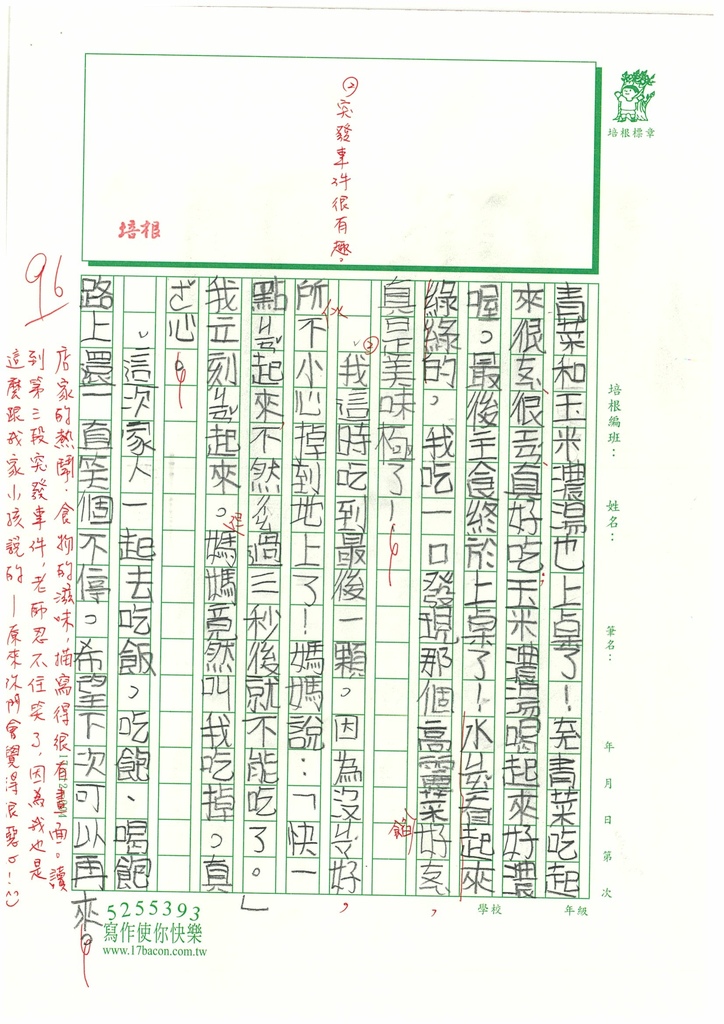 培根標章
培根編班：　姓名：　筆名：　年　月　日　第　次
學校　年級
②突發事件很有趣。
培根
青菜和玉米濃湯也上桌了！ 青菜吃起
來很ㄘㄨㄟˋ很ㄊㄧㄢˊ真好吃玉米濃湯喝起來好濃
喔。最後主食終於上桌了！水 看起來
綠綠的，我吃一口發現那個高麗菜好
餡
真是美味極了！
②我這時吃到最後一顆，因為沒 好，
所不小心掉到地上了！媽媽說：「快一
以
點 起來不然 過三秒後就不能吃了。」
我立刻 起來。媽媽竟然叫我吃掉。真
心。
這次家人一起去吃飯，吃飽、喝飽
路上還一直笑個不停。希望下次可以再來。
96
店家的熱鬧，食物的滋味，描寫得很有畫面。讀
到第三段突發事件，老師忍不住笑了，因為我也是
這麼跟我家小孩說的！原來你們會覺得很惡ㄛ！
5255393
寫作使你快樂
www.17bacon.com.tw